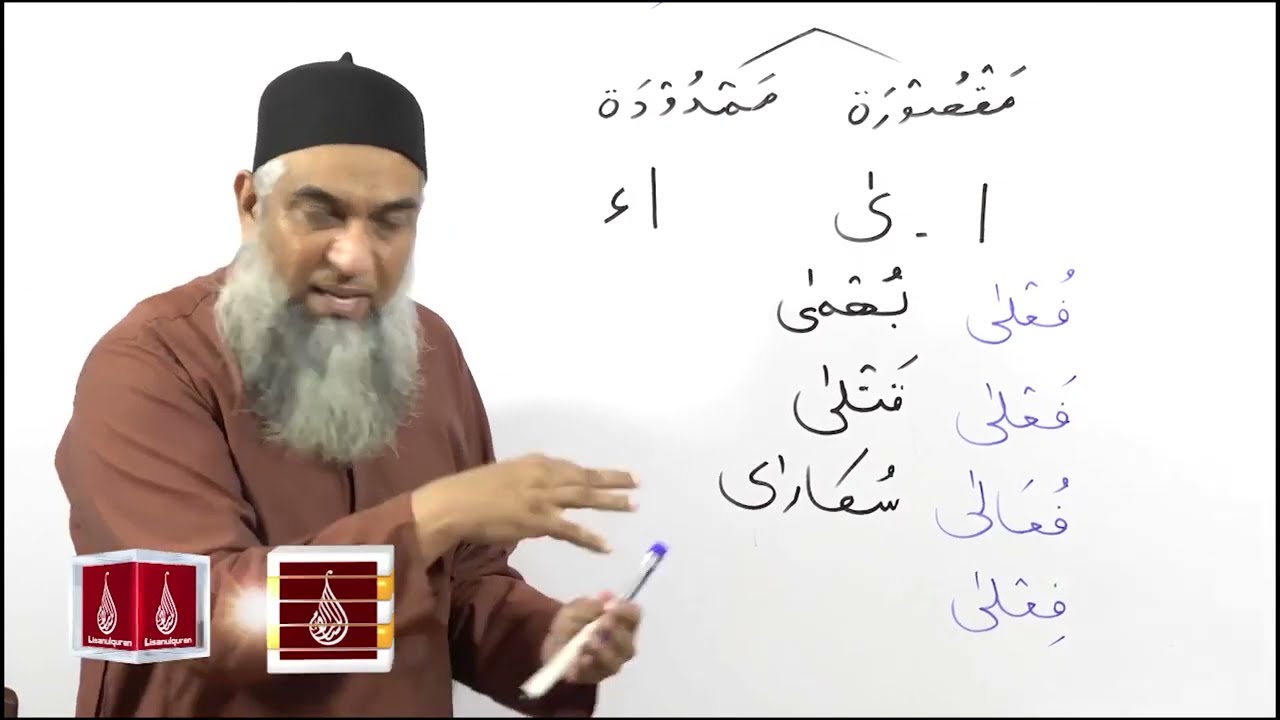 مَقْصُوْرَة مَمْدُوْدَة
ا - ىٰ اء
فُعْلىٰ بُهْمىٰ
فَعْلىٰ قَتْلىٰ
فُعَالىٰ سُكارىٰ
فِعْلىٰ
Lisanulquran Lisanulquran